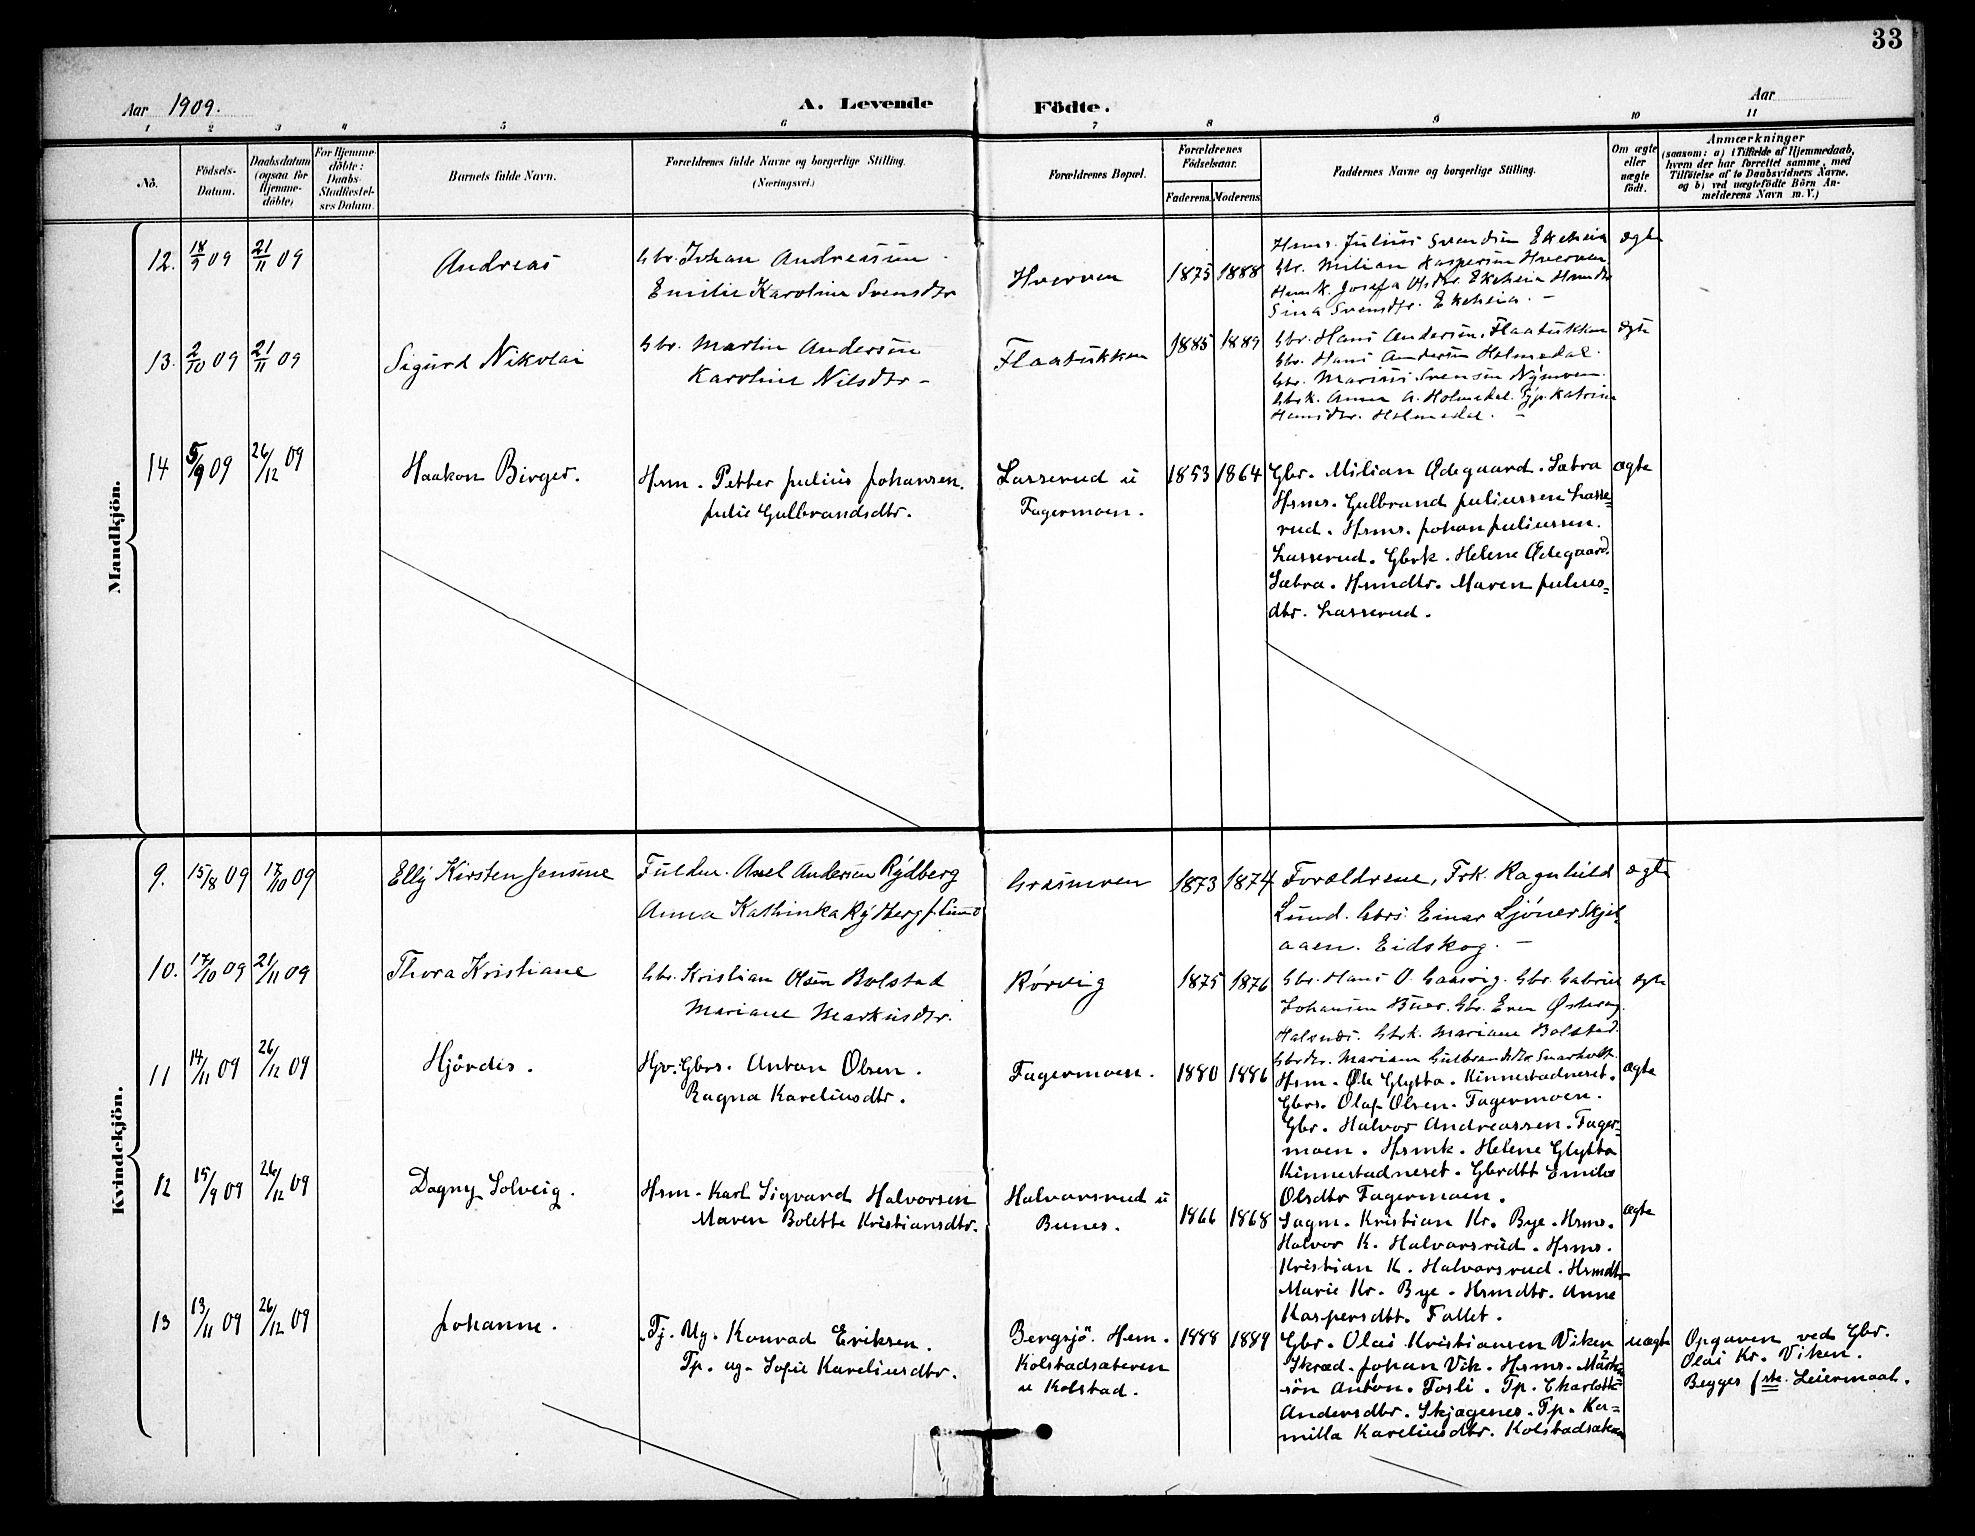 33
Aar 1909.
A. Levende Födte.
Aar
1 2 3 4 5 6 7 8 9 10 11
No.
Födsels-
Datum.
Daabsdatum
(ogsaa for
Hjemme-
döbte)
For Hjemme-
döbte:
Daabs-
Stadfæstel-
ses Datum.
Barnets fulde Navn.
Forældrenes fulde Navne og borgerlige Stilling.
(Næringsvei.)
Forældrenes Bopæl.
Forældrenes
Födselsaar.
Faderens. Moderens.
Faddernes Navne og borgerlige Stilling.
Om ægte
eller
uægte
födt.
Anmærkninger
(saasom: a) i Tilfælde af Hjemmedaab,
hvem der har forrettet samme, med
Tilföielse af to Daabsvidners Navne.
og b) ved uægtefödte Börn An-
melderens Navn m. V.)
Mandkjön.
12. 18/9 09 21/11 09
Andreas
Gbr. Johan Andreassen.
Emilie Karoline Svensdtr
Hverven
1875 1888
Hsms. Julius Svendsen Ekeheia
Gbr. Milian Kaspersen Hverven
Hsmk. Josefa Olsdtr. Ekeheia Hsmdtr
Sina Svensdtr. Ekeheia. –
ægte
13. 2/10 09 21/11 09
Sigurd Nikolai
Gbr. Martin Andersen
Karoline Nilsdtr –
Flaatukken
1885 1889
Gbr. Hans Andersen, Flaatukken
Gbr. Hans Andersen Holmedal.
Gbr. Marius Svensen Nymoen.
Gbrk. Anna A. Holmedal. Tjp. Katrine
Hansdtr. Holmedal. –
ægte
14 5/9 09 26/12 09
Haakon Birger.
Hsm. Petter Julius Johansen.
Julie Gulbrandsdtr.
Lasserud u
Fagermoen.
1853 1864
Gbr. Milian Ødegaard. Sæbra
Hsms. Gulbrand Juliussen Lasse=
rud. Hsms. Johan Juliussen.
Lasserud. Gbrk. Helene Ødegaard.
Sæbra. Hsmdtr. Maren Julius=
dtr. Lasserud.
ægte
Kvindekjön.
9. 15/8 09 17/10 09
Elly Kirsten Jensine
Fuldm. Axel Andersen Rydberg
Anna Kathinka Rydberg f. Lund
Grasmoen
1873 1874
Forældrene, Frk. Ragnhild
Lund. Gbrs. Einar Ljöner Skjel-
aaen. Eidskog. –
ægte
10. 17/10 09 21/11 09
Thora Kristiane
Gbr. Kristian Olsen Bolstad
Mariane Markusdtr.
Rørvig
1875 1876
Gbr. Hans O. Gaasvig. Gbr. Gabriel
Johansen Buer. Gbr. Even Østeraug
Halsnæs. Gbrk. Mariane Bolstad.
Gbrdtr. Mariam Gulbrandsdtr Snarholt.
ægte
11 14/11 09 26/12 09
Hjördis.
Hjv. Gbrs. Anton Olsen.
Ragna Kareliusdtr.
Fagermoen.
1880 1886
Hsm. Ole Glytta. Kinnestadneset.
Gbrs. Olaf Olsen. Fagermoen.
Gbr. Halvor Andreassen. Fager=
moen. Hsmk. Helene Glytta
Kinnestadneset. Gbrdtt Emilie
Olsdtr Fagermoen.
ægte
12 15/9 09 26/12 09
Dagny Solveig.
Hsm. Karl Sigvard Halvorsen
Maren Bolette Kristiansdtr.
Halvorsrud u
Bunes.
1866 1868
Sagm. Kristian Kr. Bye. Hsms.
Halvor K. Halvorsrud. Hsms.
Kristian K. Halvorsrud. Hsmdtr
Marie Kr. Bye. Hsmdtr. Anne
Kaspersdtt. Fallet.
ægte
13 13/11 09 26/12 09
Johanne.
Tj. Ug. Konrad Eriksen.
Tp. ug. Sofie Kareliusdtr.
Bergsjö. Hem.
Kolstadsæteren
u Kolstad.
1888 1889
Gbr. Olai Kristiansen Viken
Skræd. Johan Vik. Hsms. Mårten
sön Anton. Fosli. Tp. Charlotte
Andersdtr. Skjagenes. Tp. Ka=
milla Kareliusdtr. Kolstadsæteren
uægte
Opgaven ved Gbr.
Olai Kr. Viken.
Begges 1ste Leiermaal.